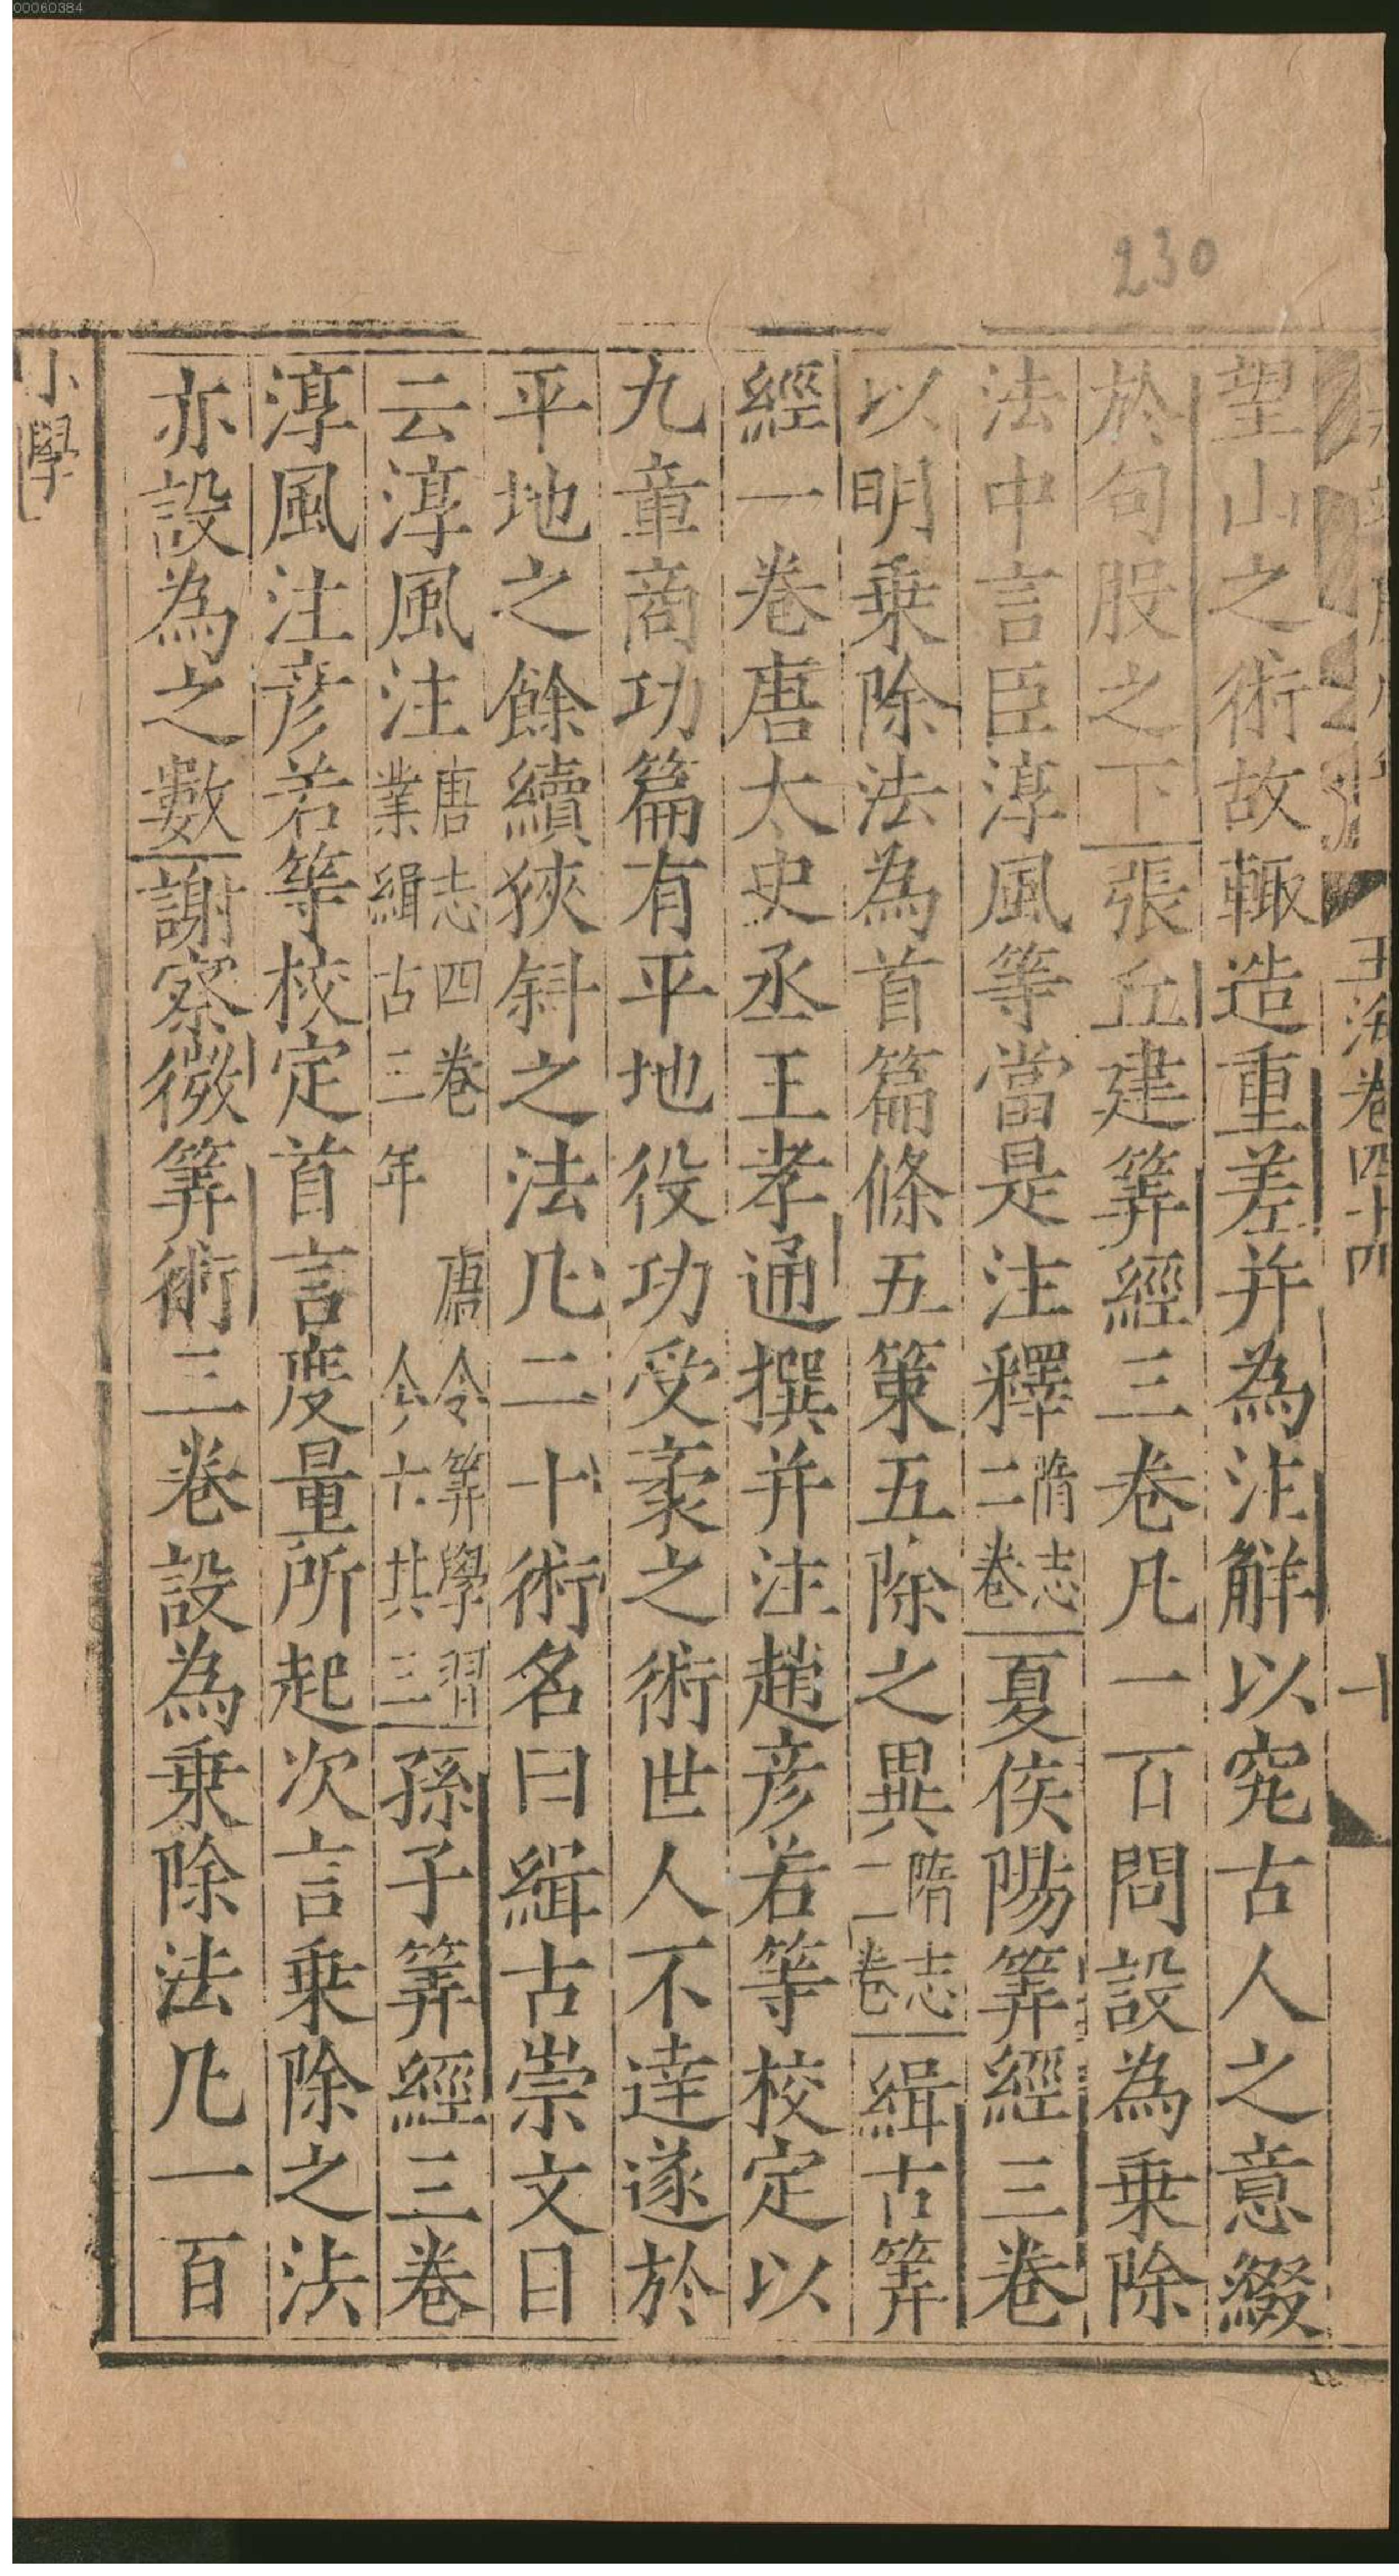 00060384
230
玉海卷四十四
十
望山之術故輙造重差并為注解以究古人之意綴
於句股之下張丘建筭經三卷凡一百問設為乗除
法中言臣淳風等當是注釋隋志二卷夏侯陽筭經三卷
以明乗除法為首篇條五策五除之異隋志二卷緝古筭
經一卷唐太史丞王孝通撰并注趙彦若等校定以
九章商功篇有平地役功受袤之術世人不達遂於
平地之餘續狹斜之法凡二十術名曰緝古崇文目
云淳風注唐志四卷唐令筭學習業緝古三年今六共三孫子筭經三卷
淳風注彦若等校定首言度量所起次言乗除之法
亦設為之數謝察微筭術三卷設為乗除法凡一百
小學